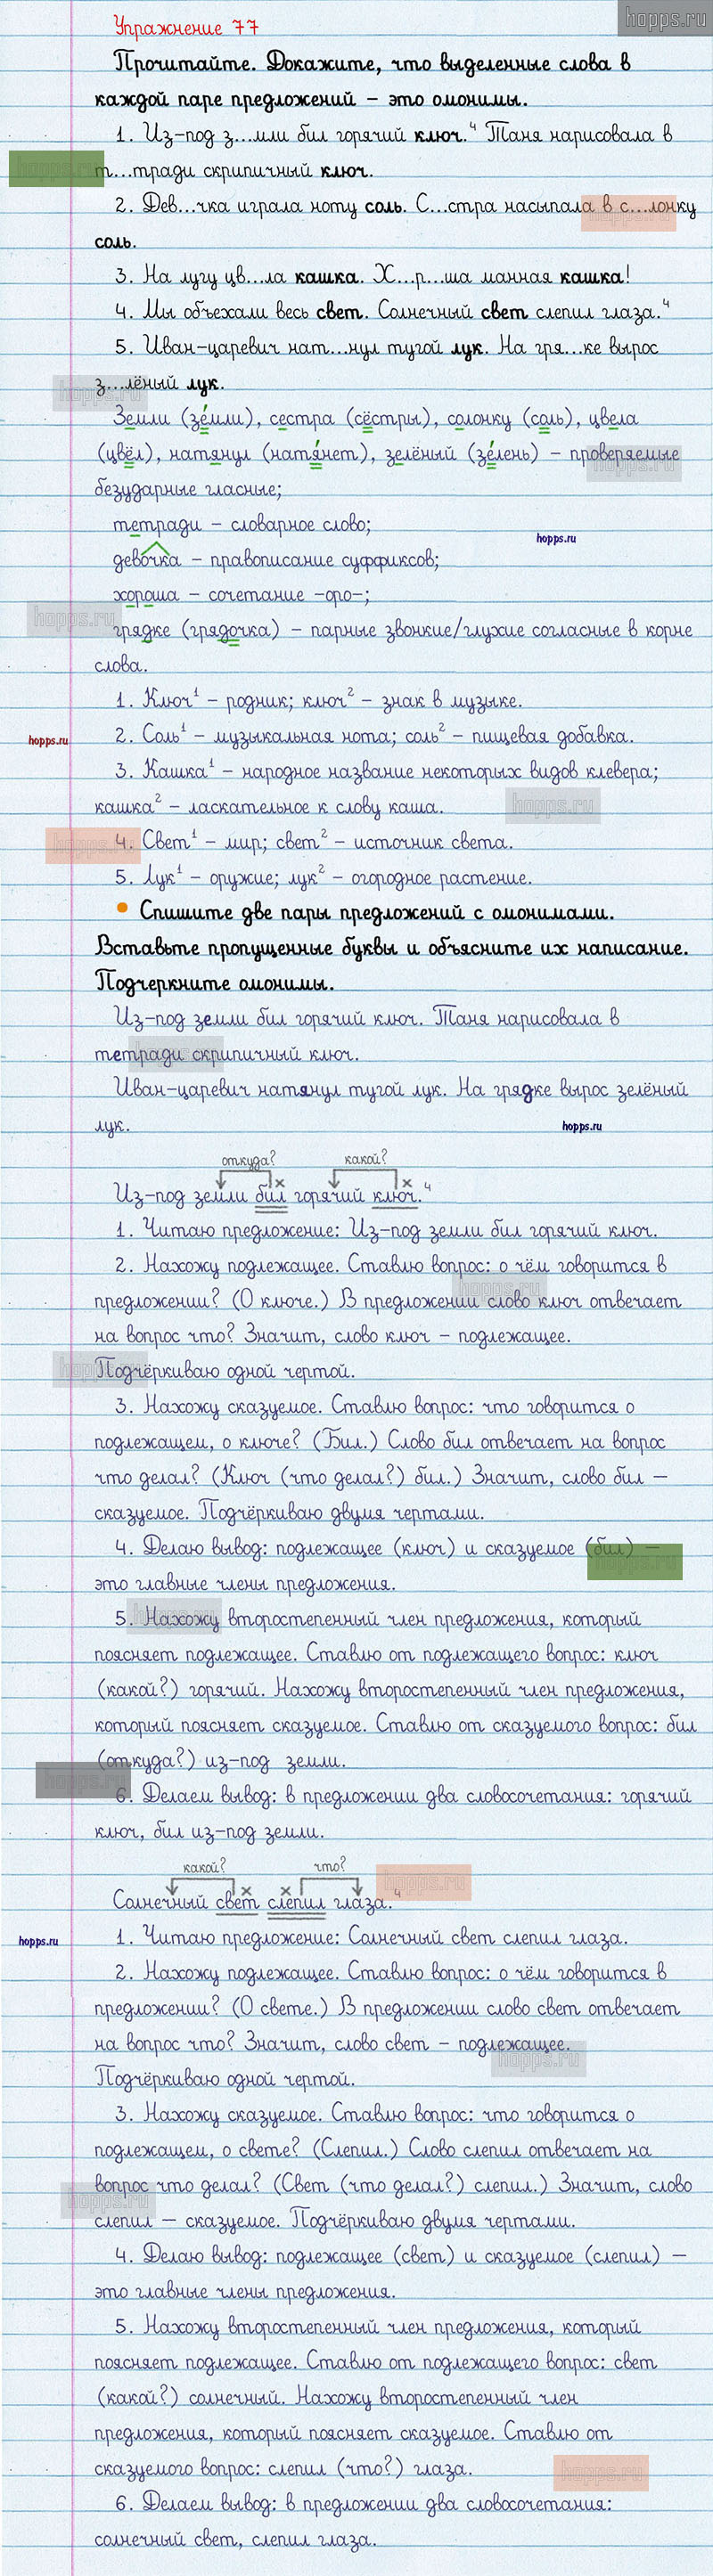 hopps.ru
Упражнение 77
Прочитайте. Докажите, что выделенные слова в
каждой паре предложений – это омонимы.
1. Из-под з...мли бил горячий ключ.⁴ Таня нарисовала в
т...тради скрипичный ключ.
2. Дев...чка играла ноту соль. С...стра насыпала в с...лонку
соль.
3. На лугу цв...ла кашка. Х...р...ша манная кашка!
4. Мы объехали весь свет. Солнечный свет слепил глаза.⁴
5. Иван-царевич нат...нул тугой лук. На гря...ке вырос
з...лёный лук.
Земли (зе́мли), сестра (сёстры), солонку (соль), цвела
(цвёл), натянул (натя́нет), зелёный (зе́лень) – проверяемые
безударные гласные;
тетради – словарное слово;
hopps.ru
девочка – правописание суффиксов;
хороша – сочетание -оро-;
грядке (грядочка) – парные звонкие/глухие согласные в корне
слова.
1. Ключ¹ – родник; ключ² – знак в музыке.
2. Соль¹ – музыкальная нота; соль² – пищевая добавка.
hopps.ru
3. Кашка¹ – народное название некоторых видов клевера;
кашка² – ласкательное к слову каша.
4. Свет¹ – мир; свет² – источник света.
5. Лук¹ – оружие; лук² – огородное растение.
Спишите две пары предложений с омонимами.
Вставьте пропущенные буквы и объясните их написание.
Подчеркните омонимы.
Из-под земли бил горячий ключ. Таня нарисовала в
тетради скрипичный ключ.
Иван-царевич натянул тугой лук. На грядке вырос зелёный
лук.
hopps.ru
откуда? какой?
Из-под земли бил горячий ключ.⁴
1. Читаю предложение: Из-под земли бил горячий ключ.
2. Нахожу подлежащее. Ставлю вопрос: о чём говорится в
предложении? (О ключе.) В предложении слово ключ отвечает
на вопрос что? Значит, слово ключ – подлежащее.
Подчёркиваю одной чертой.
3. Нахожу сказуемое. Ставлю вопрос: что говорится о
подлежащем, о ключе? (Бил.) Слово бил отвечает на вопрос
что делал? (Ключ (что делал?) бил.) Значит, слово бил –
сказуемое. Подчёркиваю двумя чертами.
4. Делаю вывод: подлежащее (ключ) и сказуемое (бил) –
это главные члены предложения.
5. Нахожу второстепенный член предложения, который
поясняет подлежащее. Ставлю от подлежащего вопрос: ключ
(какой?) горячий. Нахожу второстепенный член предложения,
который поясняет сказуемое. Ставлю от сказуемого вопрос: бил
(откуда?) из-под земли.
6. Делаем вывод: в предложении два словосочетания: горячий
ключ, бил из-под земли.
какой? что?
Солнечный свет слепил глаза.⁴
hopps.ru
1. Читаю предложение: Солнечный свет слепил глаза.
2. Нахожу подлежащее. Ставлю вопрос: о чём говорится в
предложении? (О свете.) В предложении слово свет отвечает
на вопрос что? Значит, слово свет – подлежащее.
Подчёркиваю одной чертой.
3. Нахожу сказуемое. Ставлю вопрос: что говорится о
подлежащем, о свете? (Слепил.) Слово слепил отвечает на
вопрос что делал? (Свет (что делал?) слепил.) Значит, слово
слепил – сказуемое. Подчёркиваю двумя чертами.
4. Делаю вывод: подлежащее (свет) и сказуемое (слепил) –
это главные члены предложения.
5. Нахожу второстепенный член предложения, который
поясняет подлежащее. Ставлю от подлежащего вопрос: свет
(какой?) солнечный. Нахожу второстепенный член
предложения, который поясняет сказуемое. Ставлю от
сказуемого вопрос: слепил (что?) глаза.
6. Делаем вывод: в предложении два словосочетания:
солнечный свет, слепил глаза.